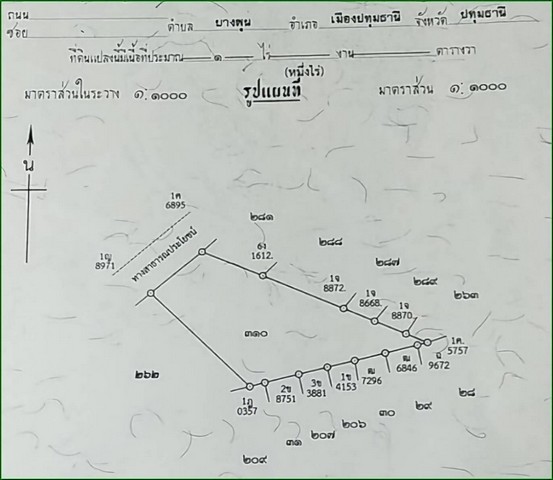 ถนน
ซอย ตำบล บางพูน อำเภอ เมืองปทุมธานี จังหวัด ปทุมธานี
ที่ดินแปลงนี้มีเนื้อที่ประมาณ ๑ ไร่ งาน ตารางวา
(หนึ่งไร่)
มาตราส่วนในระวาง ๑:๑๐๐๐ รูปแผนที่ มาตราส่วน ๑:๑๐๐๐
น
1ค
6895
1ญ
8971
ทางสาธารณประโยชน์
๒๘๑
๒๘๘
๒๘๗
๒๘๙
๒๖๓
6ง
1612.
1จ
8872.
1จ
8668.
1จ
8870.
1ค.
5757
๓๑๐
๒๖๒
9672
6846
7296
1ข
4153
3ข
3881
2ข
8751
1ฎ
0357
๒๘
๒๙
๓๐
๒๐๖
๒๐๗
๓๑
๒๐๙